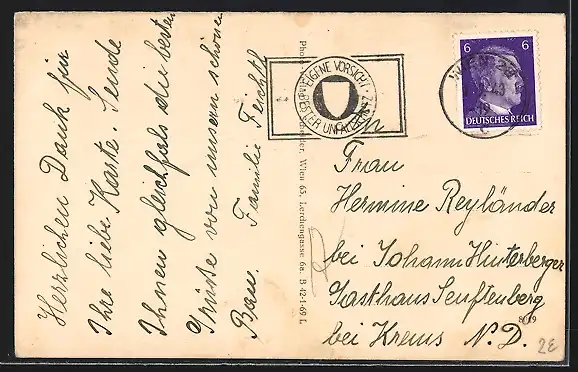 Herzlichen Dank für
Ihre liebe Karte. Sende
Ihnen gleichfals die besten
Grüße von unsern schönen
Familie Feichtl
EIGENE VORSICHT
BESTER UNFALLSCHUTZ
Wien 65, Lerchengasse 6a. B 42-1-69 L
6 6
DEUTSCHES REICH
WIEN
An
Frau
Hermine Reyländer
bei Johann Hinterberger
Gasthaus Senftenberg
bei Krems N. D.
2E